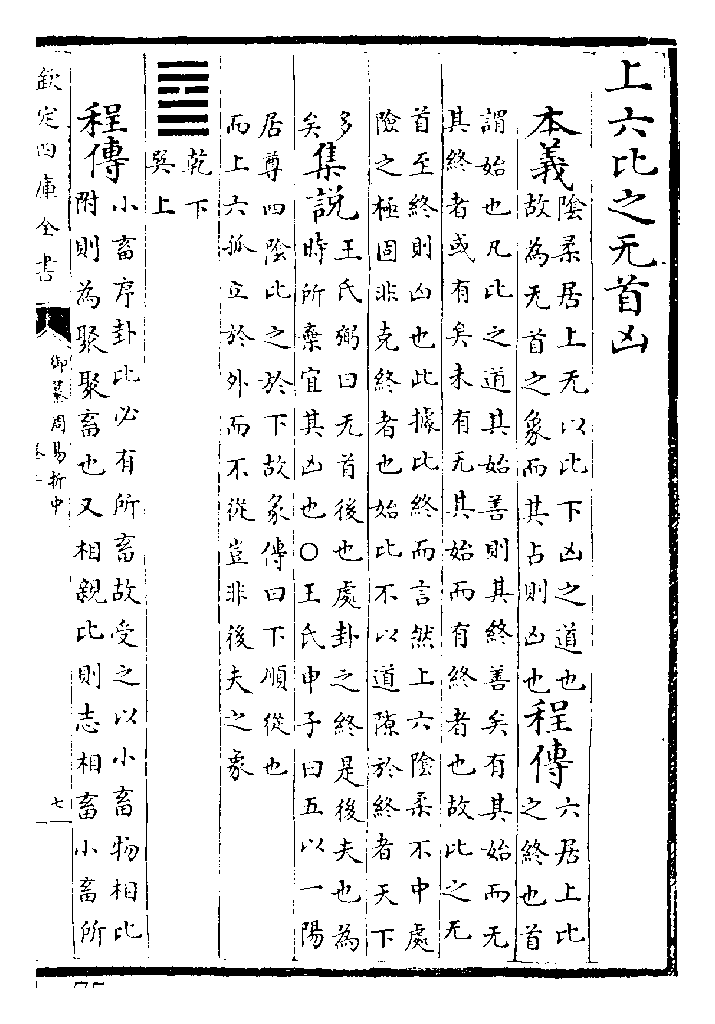 上六比之无首凶
本義
陰柔居上无以比下凶之道也
故為无首之象而其占則凶也
程傳
六居上比
之終也首
謂始也凡比之道其始善則其終善矣有其始而无
其終者或有矣未有无其始而有終者也故比之无
首至終則凶也此據比終而言然上六陰柔不中處
險之極固非克終者也始比不以道隙於終者天下
多
矣
集說
王氏弼曰无首後也處卦之終是後夫也為
時所棄宜其凶也○王氏申子曰五以一陽
居尊四陰比之於下故彖傳曰下順從也
而上六孤立於外而不從豈非後夫之象
乾下
巽上
程傳
小畜序卦比必有所畜故受之以小畜物相比
附則為聚聚畜也又相親比則志相畜小畜所
欽定四庫全書
御纂周易折中
七